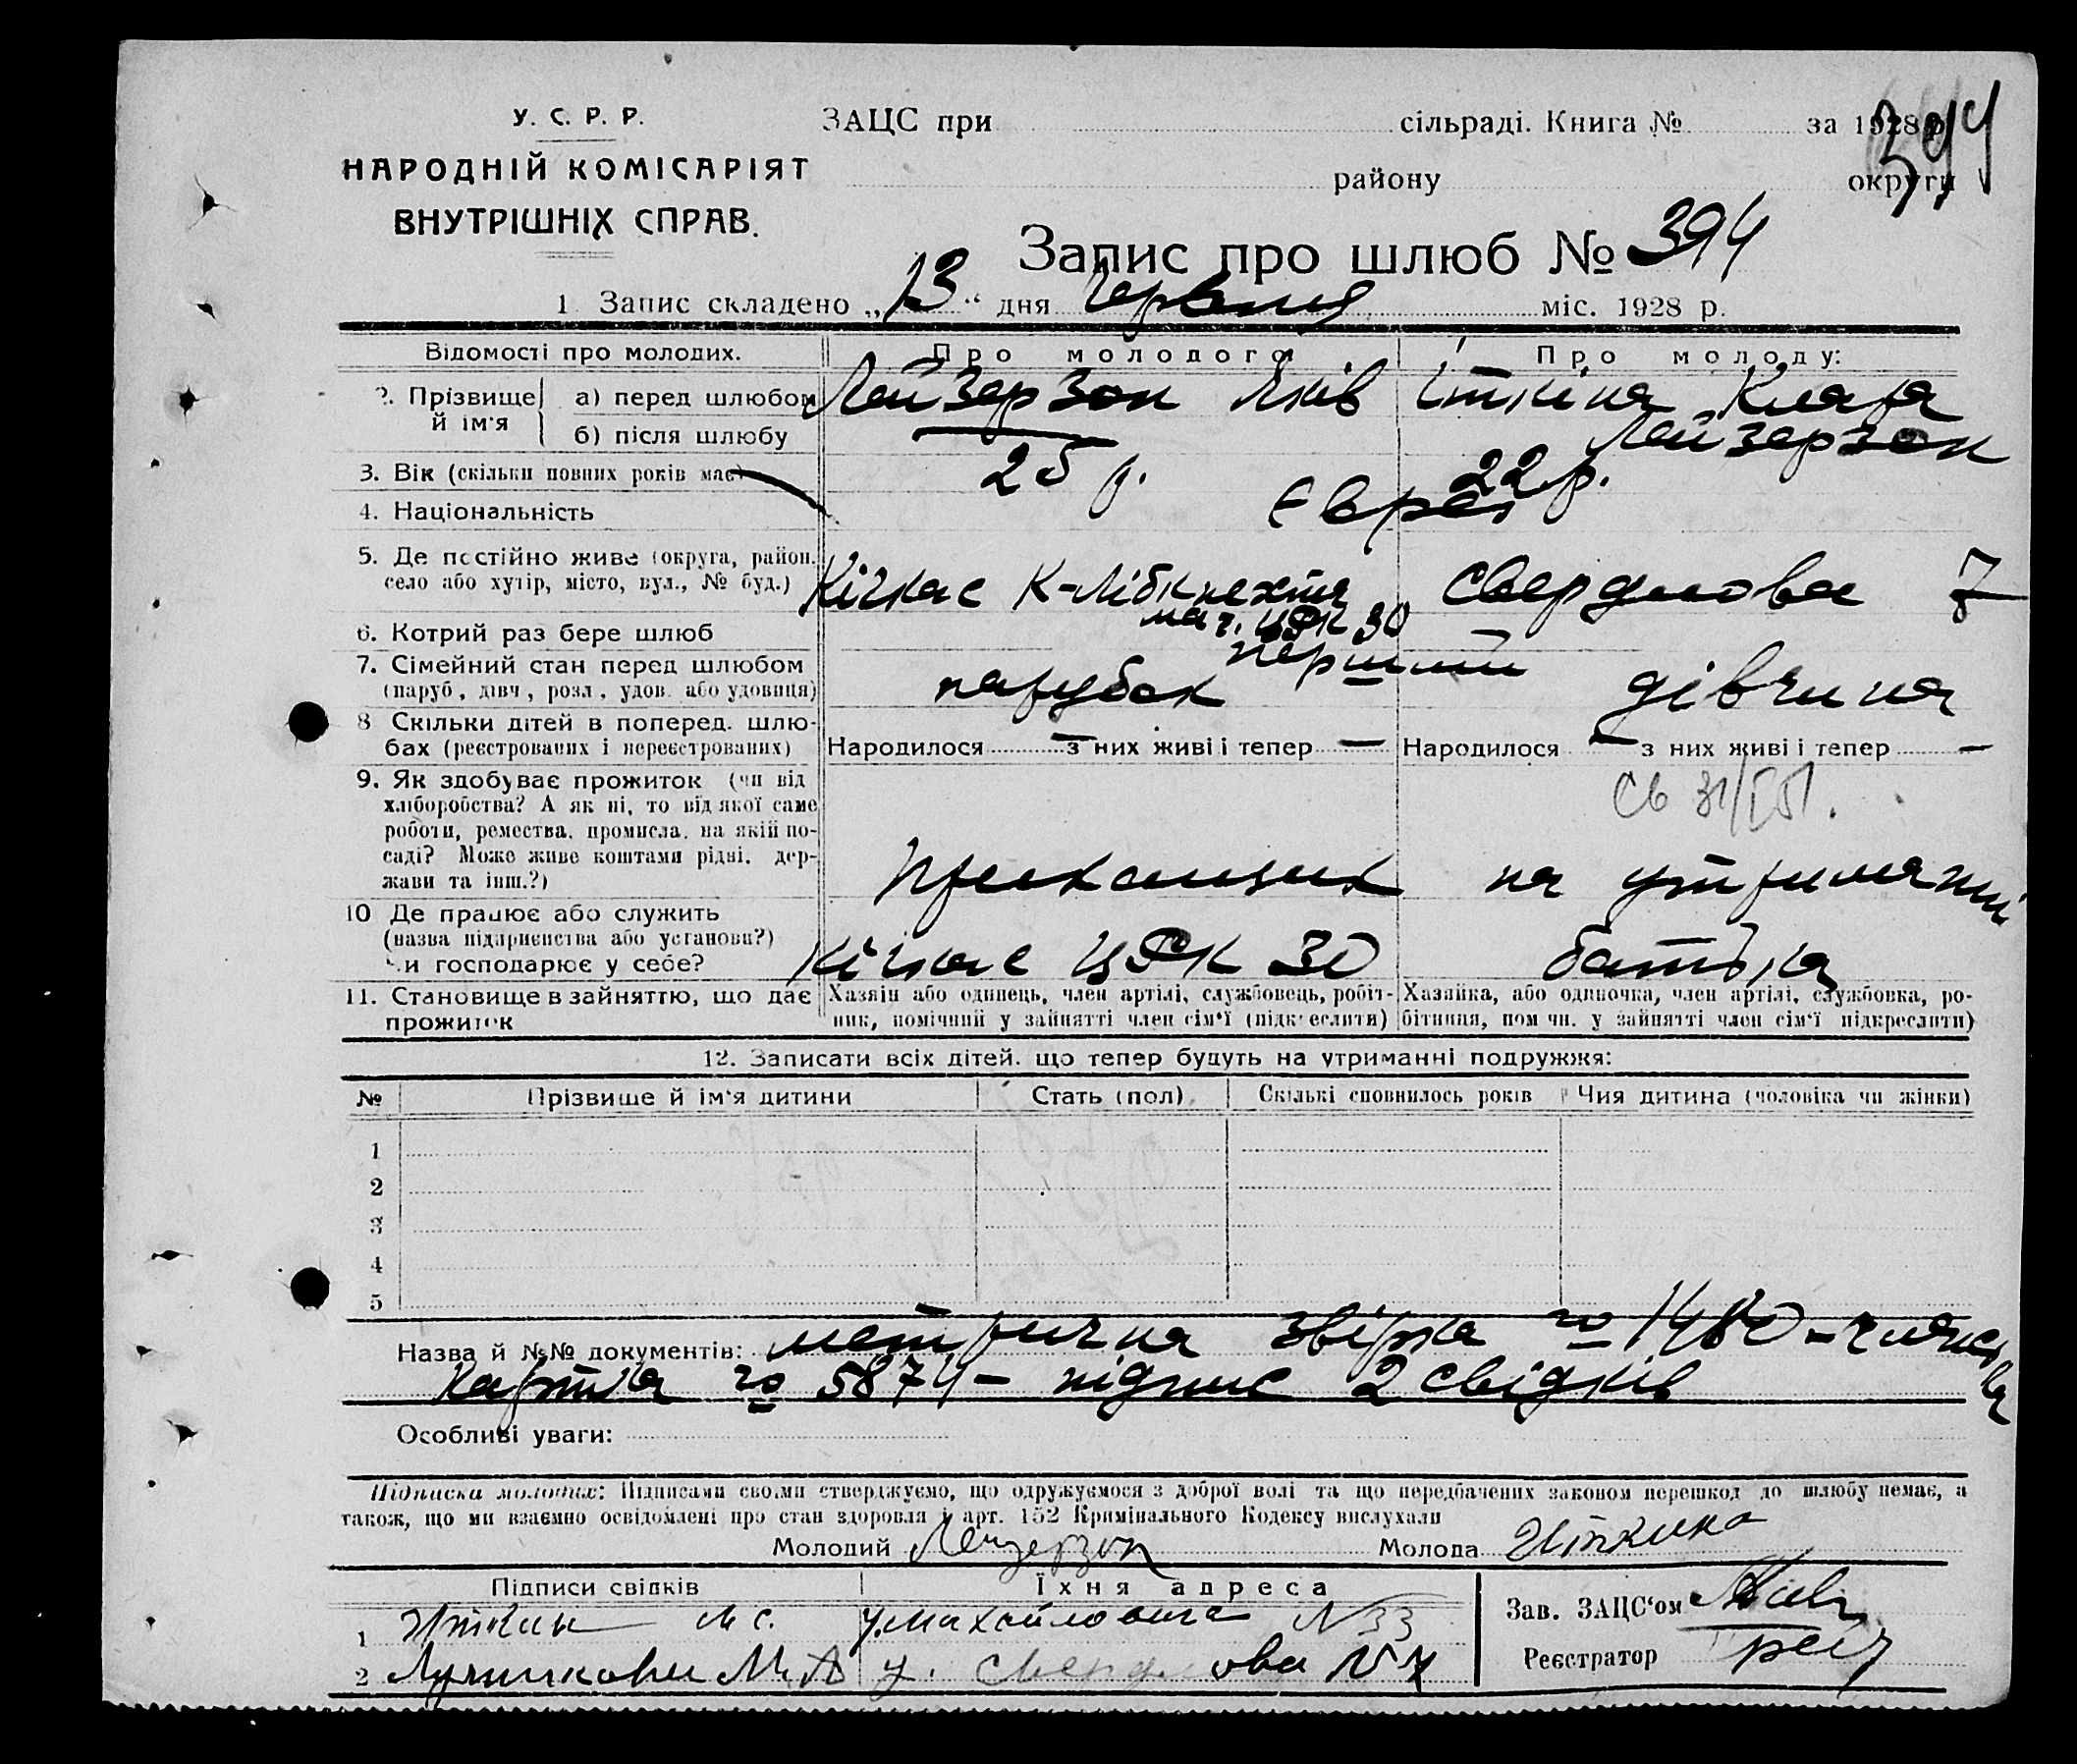 394
У. С. Р. Р.
НАРОДНІЙ КОМІСАРІЯТ
ВНУТРІШНІХ СПРАВ.
ЗАЦС при сільраді. Книга № за 1928 р.
району округи
Запис про шлюб № 394
1. Запис складено „13“ дня Червня міс. 1928 р.
Відомості про молодих. Про молодого: Про молоду:
2. Прізвище й ім'я а) перед шлюбом Лейзерзон Яків Іткіна Клара
б) після шлюбу Лейзерзон
3. Вік (скільки повних років має) 25 р. 22 р.
4. Національність Євреї
5. Де постійно живе (округа, район, Кічкас К-Лібкнехта Свердлова 7
село або хутір, місто, вул., № буд.) маг. ЦРК 30
6. Котрий раз бере шлюб перший
7. Сімейний стан перед шлюбом парубок дівчина
(паруб., дівч., розл., удов. або удовиця)
8 Скільки дітей в поперед. шлю-
бах (реєстрованих і нереєстрованих) Народилося — з них живі і тепер — Народилося — з них живі і тепер —
9. Як здобуває прожиток (чи від
хліборобства? А як ні, то від якої саме
роботи, ремества, промисла, на якій по-
саді? Може живе коштами рідні, дер-
жави та інш.?) на утриманні
10 Де працює або служить
(назва підприємства або установи?)
чи господарює у себе? Кічкас ЦРК 30 батька
11. Становище в зайняттю, що дає Хазяін або одинець, член артілі, службовець, робіт- Хазяйка, або одиночка, член артілі, службовка, ро-
прожиток ник, помічний у зайнятті член сім'ї (підкреслити) бітниця, пом чн. у зайнятті член сім'ї підкреслити)
12. Записати всіх дітей, що тепер будуть на утриманні подружжя:
№ Прізвище й ім'я дитини Стать (пол) Скількі сповнилось років Чия дитина (чоловіка чи жінки)
1
2
3
4
5
Назва й №№ документів: метрична № членська
картка № 5874 – підпис 2 свідків
Особливі уваги:
Підписка молодих: Підписами своїми стверджуємо, що одружуємося з доброї волі та що передбачених законом перешкод до шлюбу немає, а
також, що ми взаємно освідомлені про стан здоровля і арт. 152 Кримінального Кодексу вислухали
Молодий Лейзерзон Молода Иткина
Підписи свідків Їхня адреса
1 Иткин М С. № 33
2 М. А у. Свердлова № 7
Зав. ЗАЦС'ом
Реєстратор